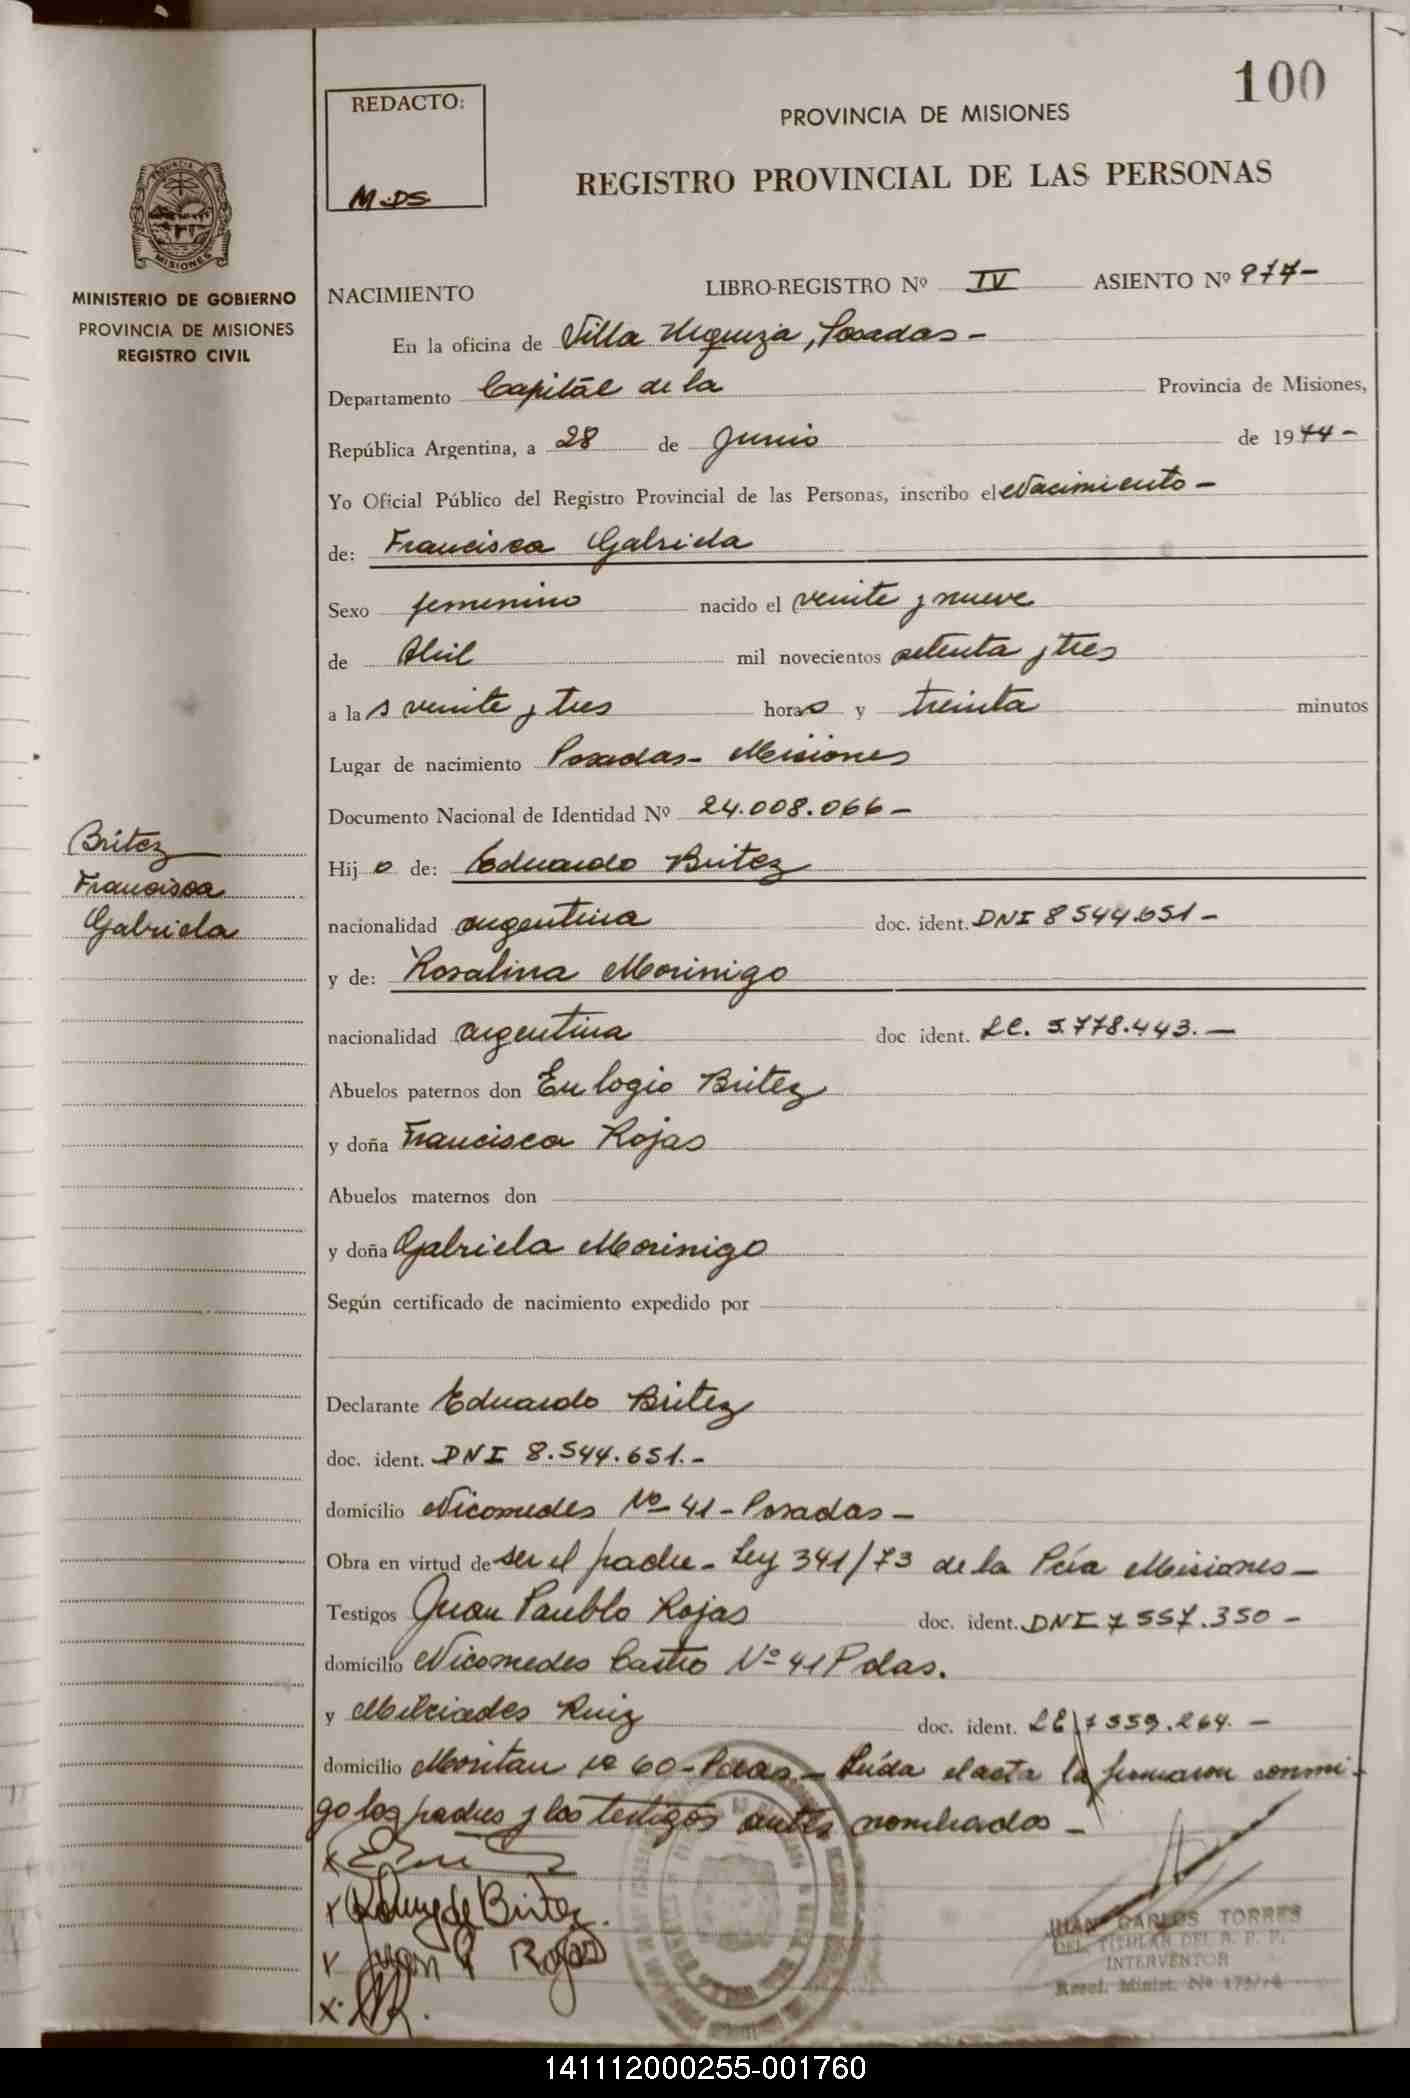 100
REDACTO:
M.DS.
PROVINCIA DE MISIONES
REGISTRO PROVINCIAL DE LAS PERSONAS
MISIONES
MINISTERIO DE GOBIERNO
PROVINCIA DE MISIONES
REGISTRO CIVIL
NACIMIENTO LIBRO-REGISTRO Nº IV ASIENTO Nº 977-
En la oficina de Villa Urquiza, Posadas-
Departamento Capital de la Provincia de Misiones,
República Argentina, a 28 de Junio de 1974-
Yo Oficial Público del Registro Provincial de las Personas, inscribo el Nacimiento-
de: Francisca Gabriela
Sexo femenino nacido el veinte y nueve
de Abril mil novecientos setenta y tres
a las veinte y tres horas y treinta minutos
Lugar de nacimiento Posadas- Misiones
Documento Nacional de Identidad Nº 24.008.066-
Britez
Francisca
Gabriela
Hij o de: Eduardo Britez
nacionalidad argentina doc. ident. DNI 8544.651-
y de: Rosalina Morinigo
nacionalidad argentina doc ident. LC. 5.778.443.-
Abuelos paternos don Eulogio Britez
y doña Francisca Rojas
Abuelos maternos don
y doña Gabriela Morinigo
Según certificado de nacimiento expedido por
Declarante Eduardo Britez
doc. ident. DNI 8.544.651.-
domicilio Nicomedes Nº 41-Posadas-
Obra en virtud de ser el padre- Ley 341/73 de la Pcia Misiones-
Testigos Juan Paublo Rojas doc. ident. DNI 7557.350-
domicilio Nicomedes Castro Nº 41 Pdas.
y Milciades Ruiz doc. ident. LE 7559.264.-
domicilio Moritan Nº 60-Pdas.- Leída el acta la firmaron conmi-
go los padres y los testigos antes nombrados-
x
x de Britez.
x Juan P Rojas
x. MR.
JUAN CARLOS TORRES
DEL. TITULAR DEL R. P. P.
INTERVENTOR
Resol. Minist. Nº
141112000255-001760